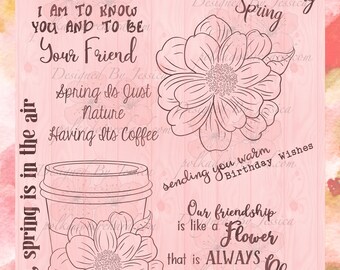 I AM TO KNOW
YOU AND TO BE
Your Friend
Spring
Spring Is Just
Nature
Having Its Coffee
spring is in the air
sending you warm
Birthday Wishes
Our friendship
is like a
Flower
that is ALWAYS